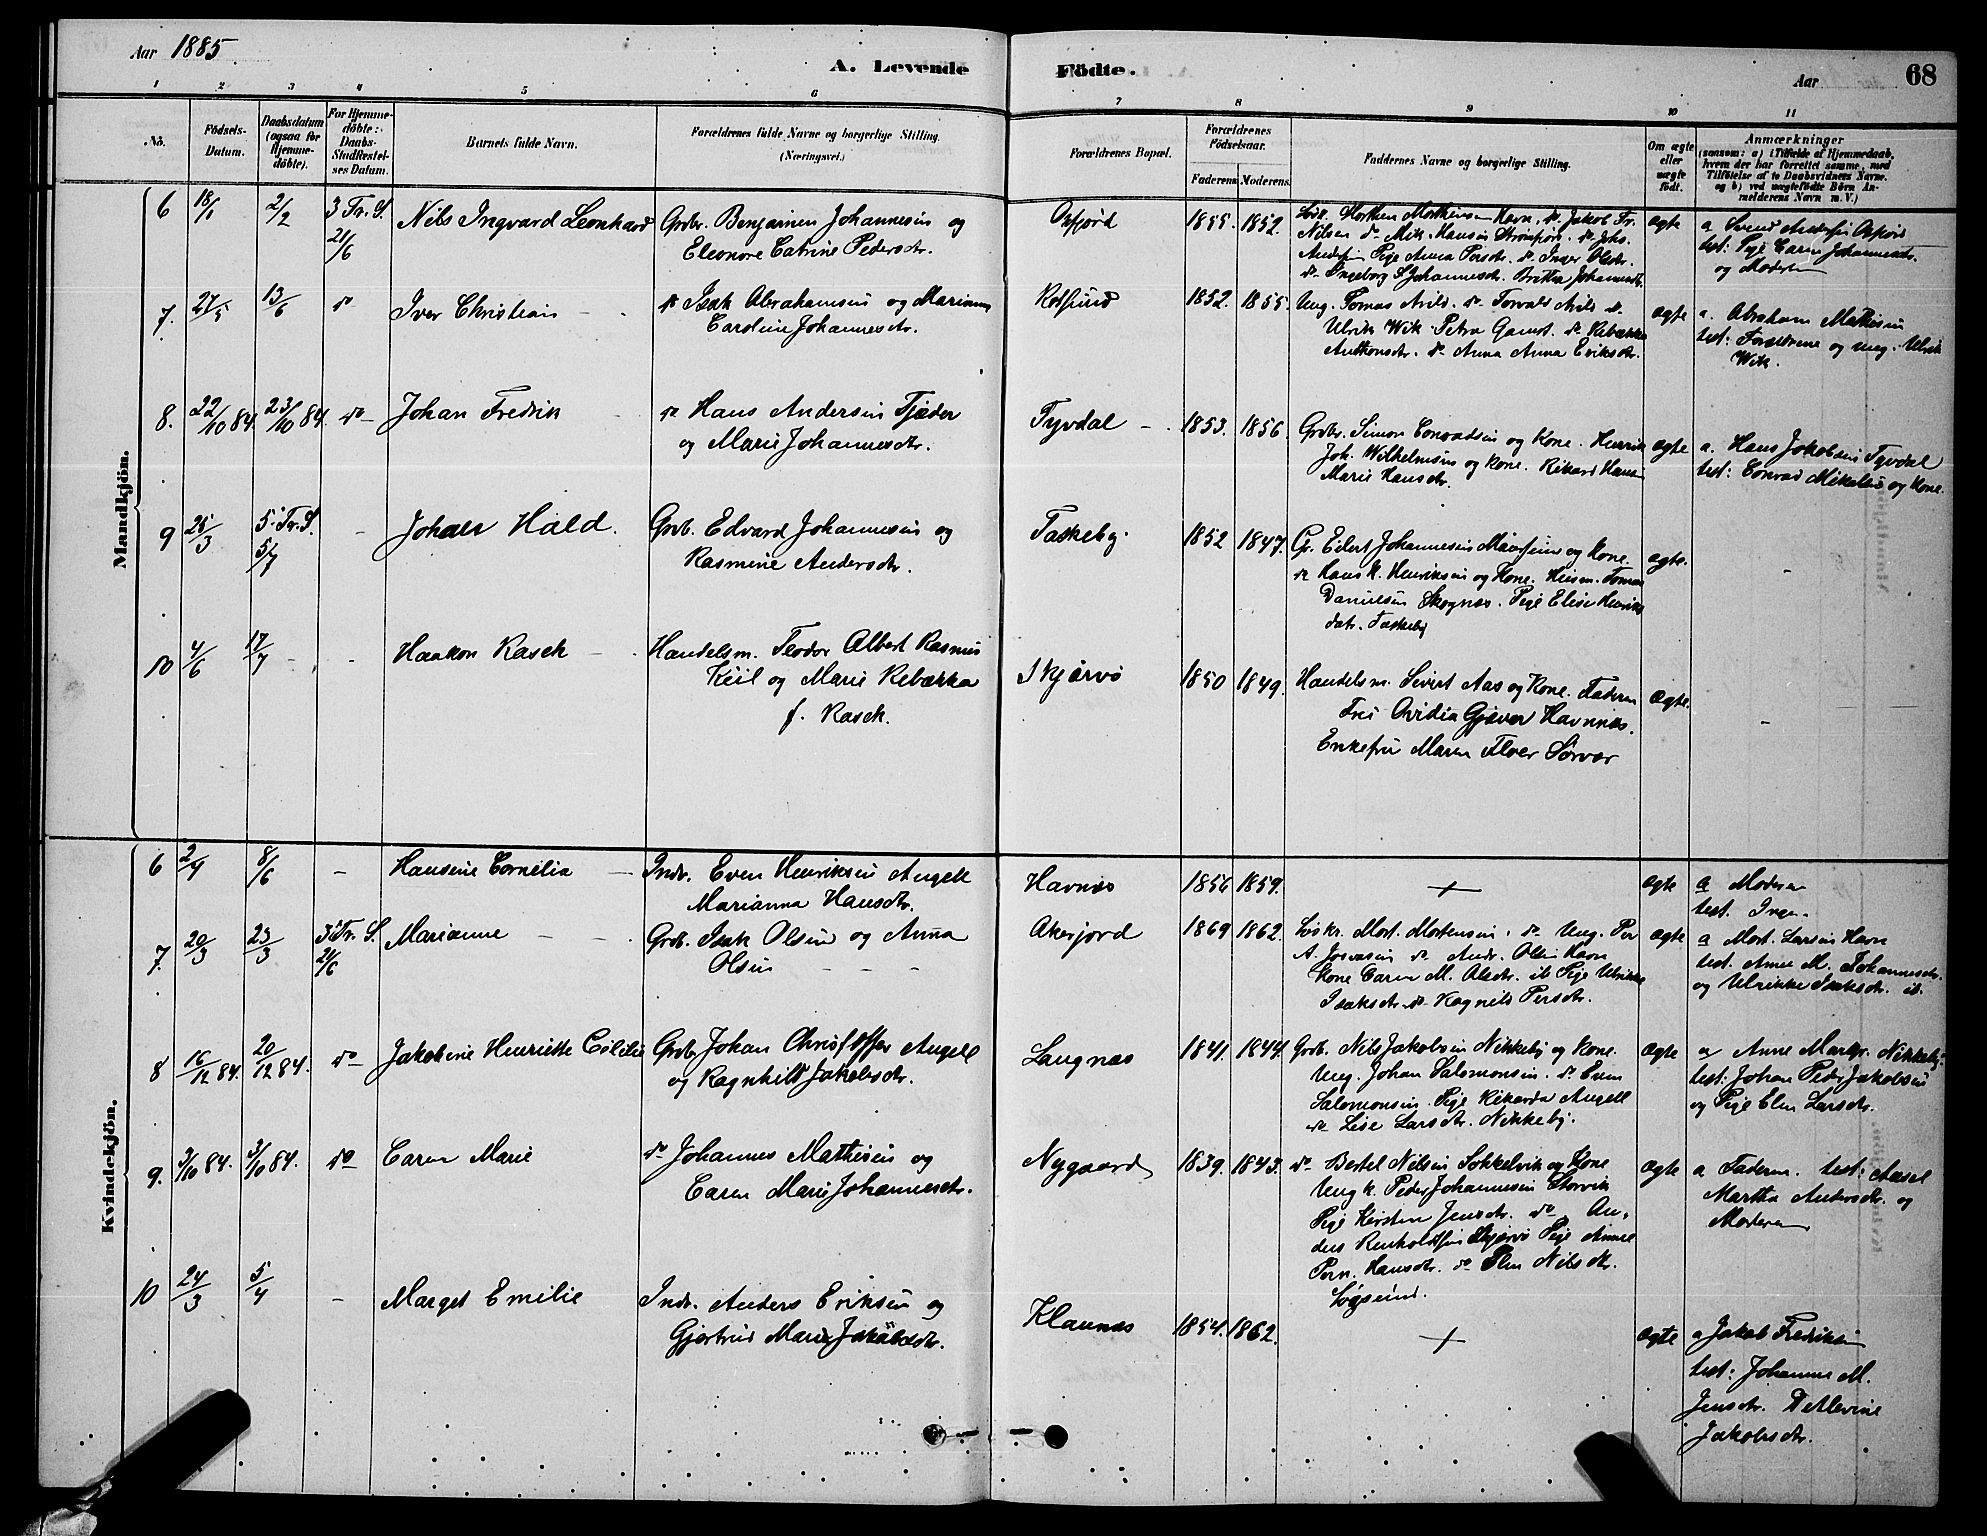 Aar 1885
A. Levende Födte.
Aar 68
1 2 3 4 5 6 7 8 9 10 11
No.
Födsels-Datum.
Daabsdatum (ogsaa for Hjemme-döbte).
For Hjemme-döbte: Daabs-Stadfæstel-ses Datum.
Barnets fulde Navn.
Forældrenes fulde Navne og borgerlige Stilling. (Næringsvei.)
Forældrenes Bopæl.
Forældrenes Födselsaar.
Faderens. Moderens.
Faddernes Navne og borgerlige Stilling.
Om ægte eller uægte født.
Anmærkninger
(saasom: a) i Tilfælde af Hjemmedaab,
hvem der har forrettet samme, med
Tilføielse af to Daabsvidners Navne.
og b) ved uægtefødte Börn An-
melderens Navn m. V.)
Mandkjön.
6 18/1 2/2 3 Tr. S. 21/6 Nils Ingvard Leonhard
Grbr. Benjamin Johannesen og
Eleonore Catrine Pedersdtr.
Oxfjord 1855. 1852.
Nilsen do Mik. Hansen
do Ingeborg S Johannesdtr.
ægte
test: Pige Caren Johannesdtr.
og Moderen
7. 27/5 13/6 do Iver Christian
do Isak Abrahamsen og Marianna
Caroline Johannesdtr.
Rotsund 1852. 1855.
Ung. Tomas Arild. do Torvald Arild do
Ulrik Wik. Petra Gamst. do Rebækka
Anthonsdtr. do Anna Anna Eriksdtr.
ægte
a. Abraham Mathisen
test: Forældrene og ung. Ulrik
Wik.
8. 22/10 84. 23/10 84. do Johan Fredrik
do Hans Andersen Tjæder
og Marie Johannesdtr.
Tyvdal 1853. 1856.
Grbr. Simon Conradsen og Kone. Henrik
Joh. Wilhelmsen og Kone. Rikard Hansen
Marie Hansdtr.
ægte
a. Hans Jakobsen Tyvdal
test: Conrad Mikalsen og Kone.
9 25/3 5. Tr. S. 5/7 Johan Hald.
Grb. Edvard Johannesen og
Rasmine Andersdtr.
Taskeby 1852 1847.
Gr. Eilert Johannesen og Kone.
do Hans K. Henriksen og Kone. Husm. Tomas
Danielsen Skognæs. Pige Elise Henriks
datr. Taskeby
ægte.
10 4/6 17/7 Haakon Rasch
Handelsm. Teodor Albert Rasmus
Keil og Marie Rebækka
f. Rasch.
Skjærvö 1850 1849.
Handelsm. Sivert Aas og Kone. Faderen
Frk Ovidia Gjæver Havnnæs.
Enkefru Maren Floer Sörvær
ægte.
Kvindekjön.
6 2/4 8/6 Hansine Cornelia
Indr. Even Henriksen Angell
Marianna Hansdtr.
Havnæs 1856 1859.
+
ægte
a Moderen
test. Ingen
7. 20/3 23/3 3 Tr. S. 21/6 Marianne
Grb. Isak Olsen og Anna
Olsen
Akerjord 1869 1862.
Löskr. Mort. Mortensen. do Ung. Per
A. Josvasen do Andr. Olsen Havn
Kone Caren M. Olsdtr. ib Pige Ulrikke
Isaksdtr. do Ragnild Persdtr.
ægte
a Mort. Larsen Havn
test. Anne M. Johannesdtr.
og Ulrikke Isaksdtr. ib.
8 16/12 84. 20/12 84. do Jakobine Henriette Cicilie
Grbr. Johan Christoffer Angell
og Ragnhild Jakobsdtr.
Langnæs 1841. 1844.
Grdb. Nils Jakobsen Nikkeby og Kone.
Ung. Johan Salomonsen. do Even
Salomonsen. Pige Rikarda Angell
do Lise Larsdtr. Nikkeby.
ægte
a Anne Margr. Nikkeby.
test: Johan Peder Jakobsen
og Pige Elen Larsdtr.
9. 3/10 84. 3/10 84. do Caren Marie
do Johannes Mathisen og
Caren Marie Johannesdtr.
Nygaard 1839. 1843.
do Bertel Nilsen Sokkelvik og Kone
Ungk. Peder Johannesen Storvik
Pige Kirsten Jensdtr. do An-
ders Reinholdtsen Skjærvö Pige Anne
Pern. Hansdtr. do Elen Nilsdtr.
Lögsund.
ægte
a Faderen. test: Aasel
Martha Andersdtr. og
Moderen
10 24/3 5/4 Marget Emilie
Indr. Anders Eriksen og
Gjertrud Marie Jakobsdtr.
Klaunæs 1854. 1862.
+
ægte
a Jakob Fredriksen
test: Johanne M.
Jensdtr. Detlevine
Jakobsdtr.